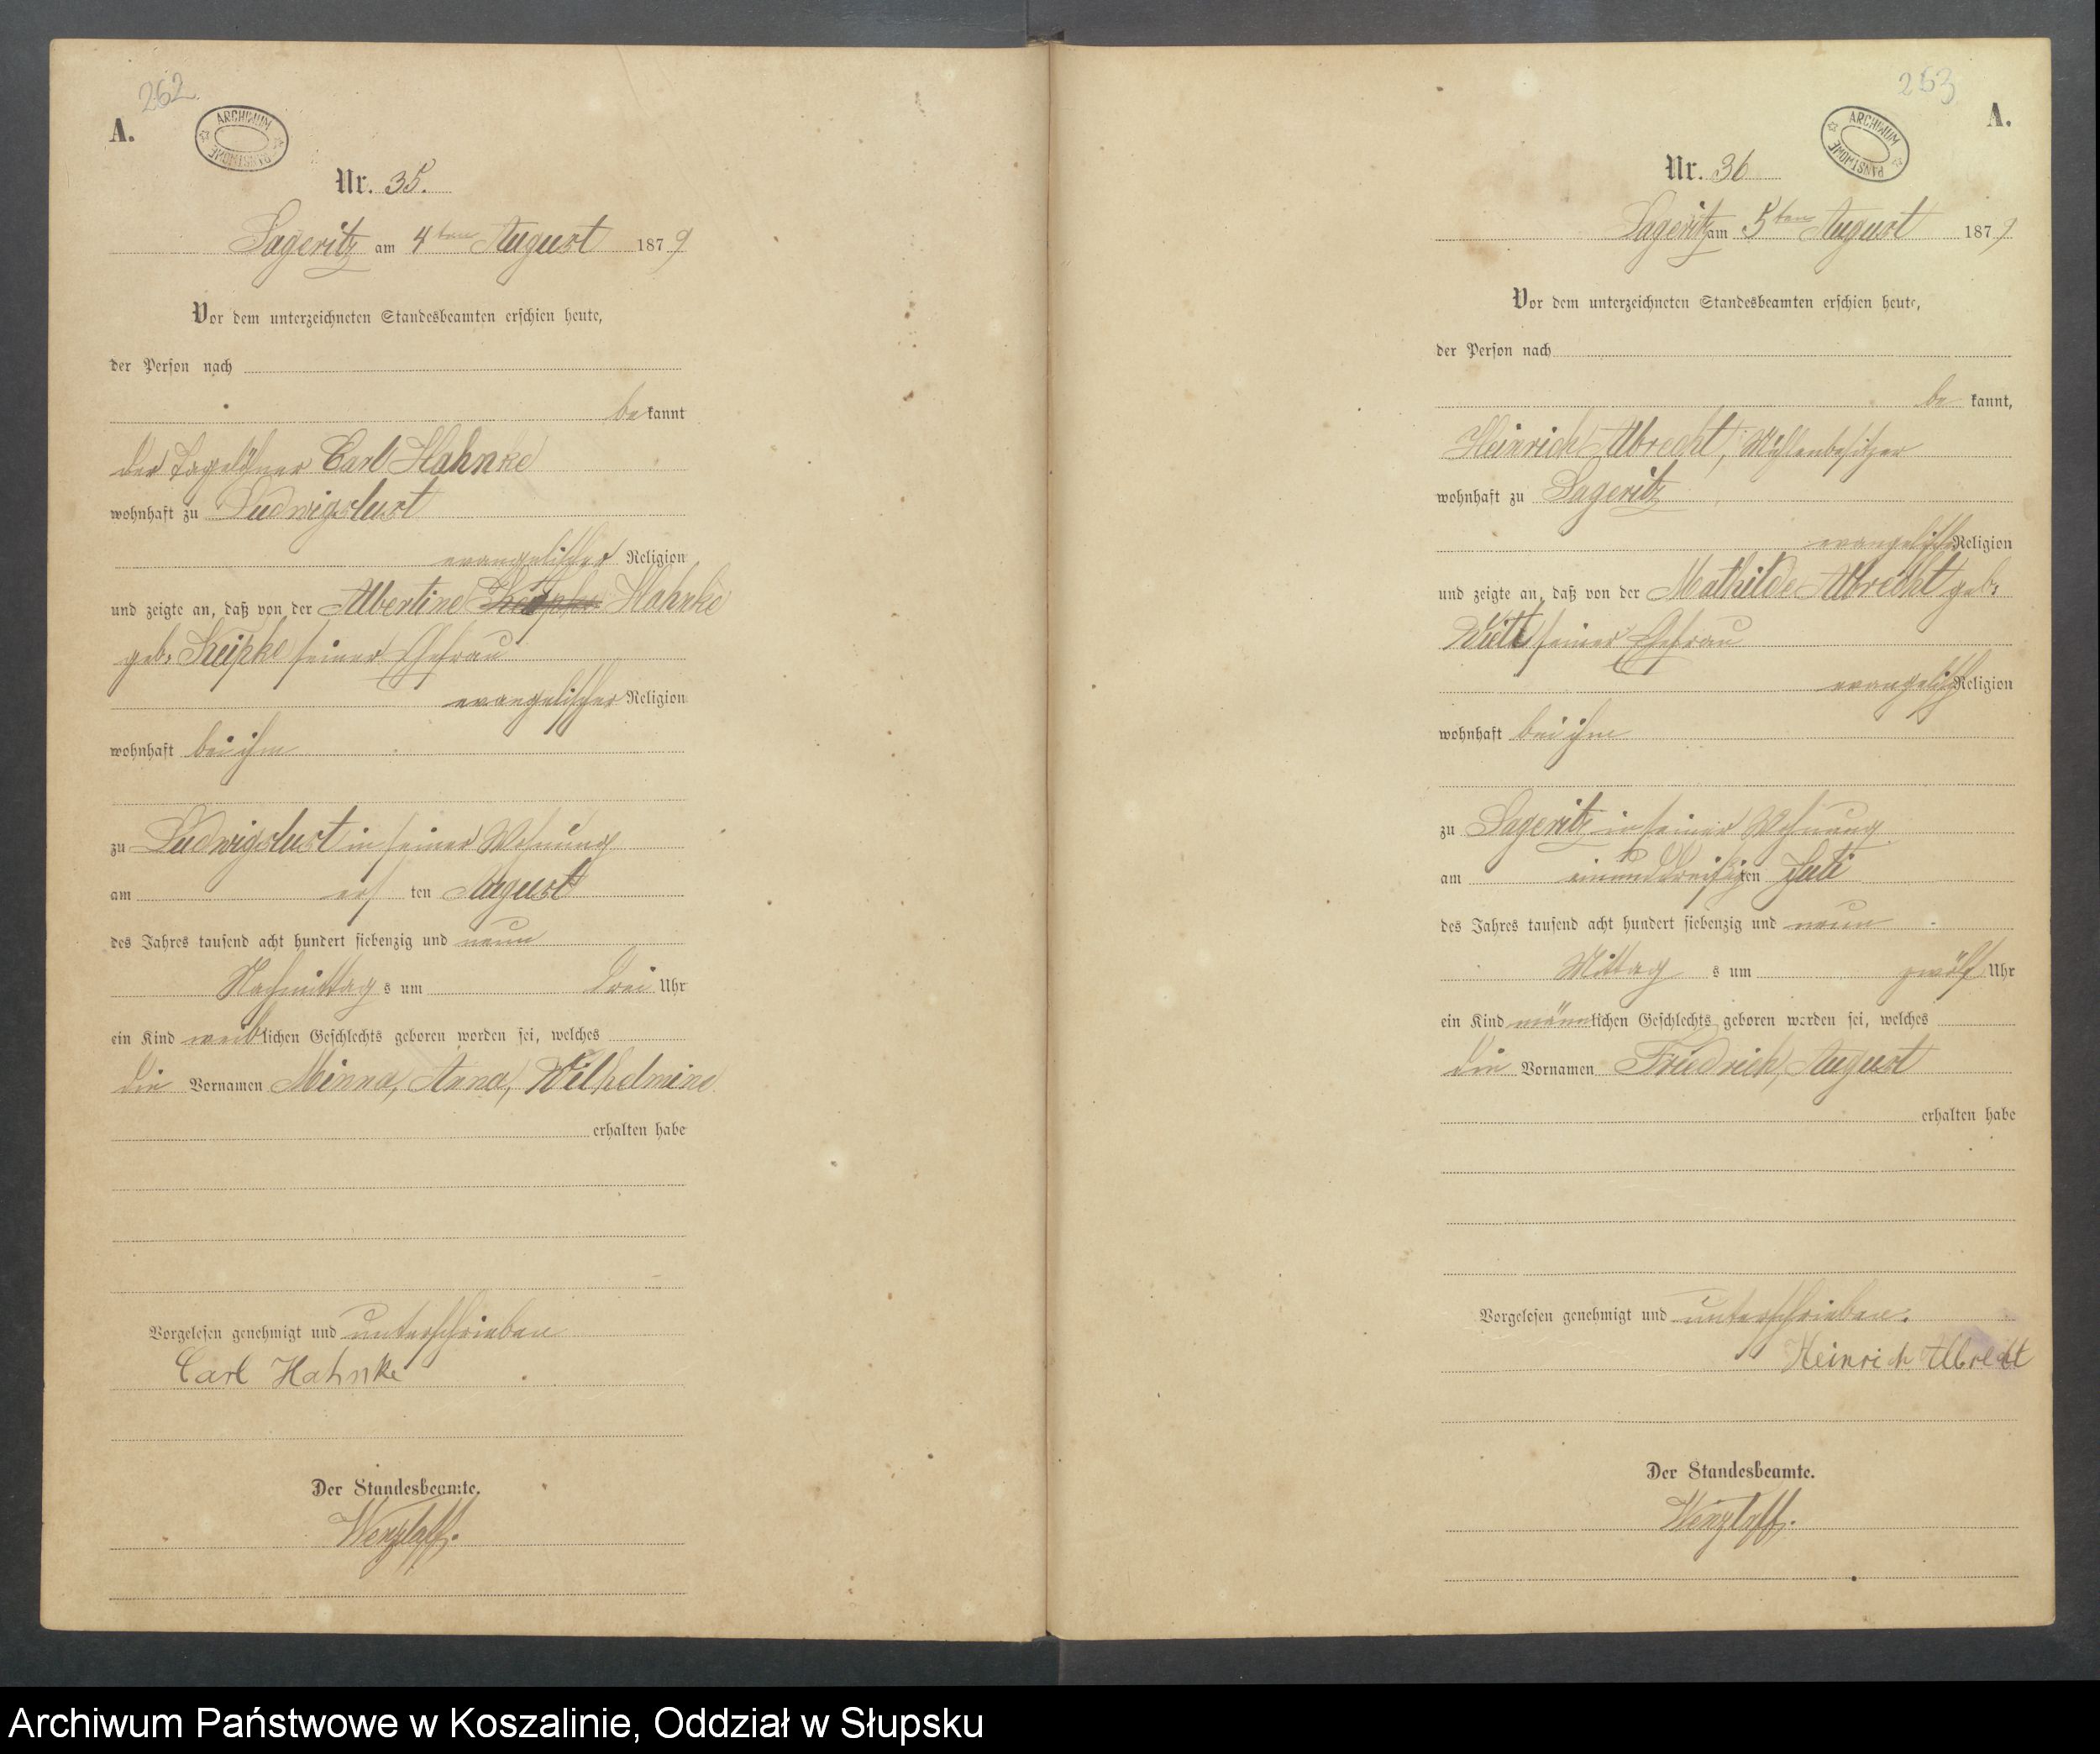 262
A.
ARCHIWUM PAŃSTWOWE
Nr. 35.
Sageritz am 4ten August 1879
Vor dem unterzeichneten Standesbeamten erschien heute,
der Person nach
bekannt
der Tagelöhner Carl Hahnke
wohnhaft zu Ludwigslust
evangelischer Religion
und zeigte an, daß von der Albertine Hahnke
geb. Keipke seiner Ehefrau
evangelischer Religion
wohnhaft bei ihm
zu Ludwigslust in seiner Wohnung
am ersten August
des Jahres tausend acht hundert siebenzig und neun
Nachmittags um drei Uhr
ein Kind weiblichen Geschlechts geboren worden sei, welches
die Vornamen Minna, Anna, Wilhelmine
erhalten habe
Vorgelesen genehmigt und unterschrieben
Carl Hahnke
Der Standesbeamte.
Wenzlaff.
263
A.
ARCHIWUM PAŃSTWOWE
Nr. 36
Sageritz am 5ten August 1879
Vor dem unterzeichneten Standesbeamten erschien heute,
der Person nach
bekannt,
Heinrich Albrecht, Mühlenbesitzer
wohnhaft zu Sageritz
evangelischer Religion
und zeigte an, daß von der Mathilde Albrecht geb.
seiner Ehefrau
evangelisch Religion
wohnhaft bei ihm
zu Sageritz in seiner Wohnung
am einunddreißigten Juli
des Jahres tausend acht hundert siebenzig und neun
Mittags um zwölf Uhr
ein Kind männlichen Geschlechts geboren worden sei, welches
die Vornamen Friedrich, August
erhalten habe
Vorgelesen genehmigt und unterschrieben.
Heinrich Albrecht
Der Standesbeamte.
Wenzlaff.
Archiwum Państwowe w Koszalinie, Oddział w Słupsku